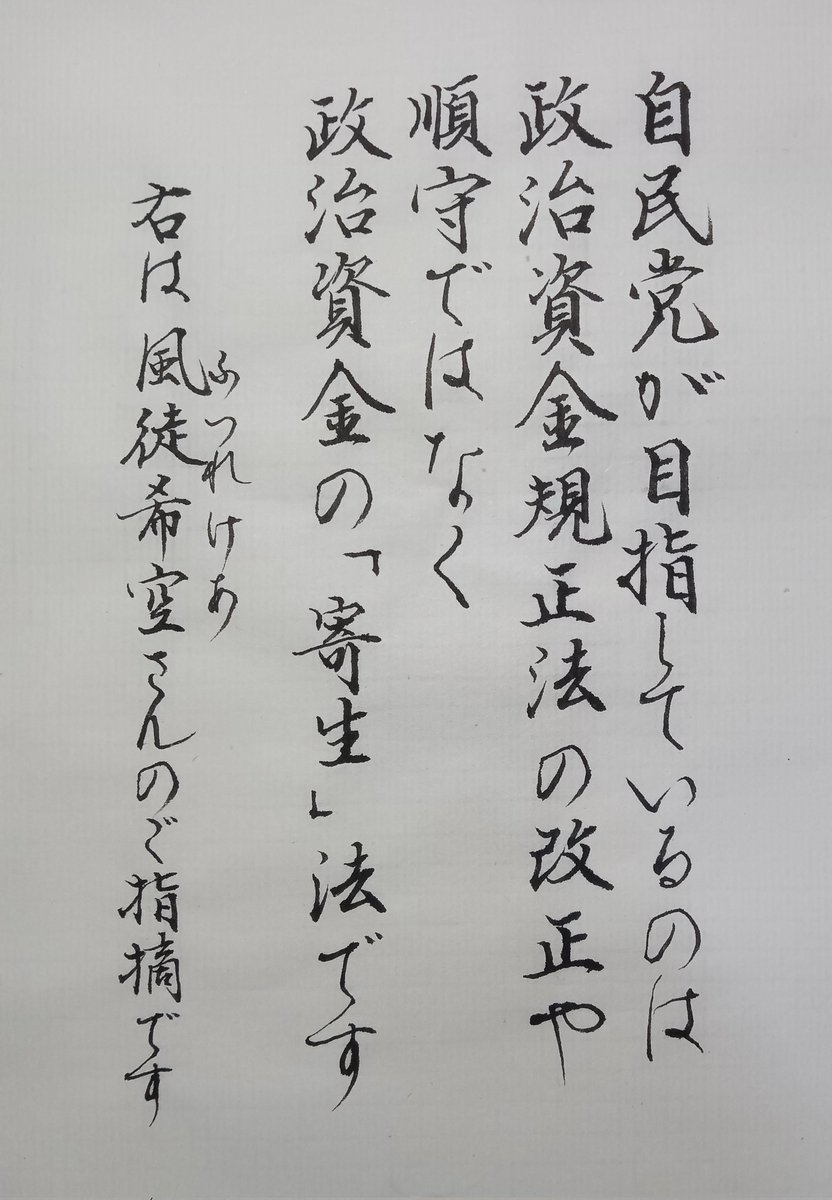 自民党が目指しているのは
政治資金規正法の改正や
順守ではなく
政治資金の「寄生」法です
右は風徒希空さんのご指摘です
ふつれけあ